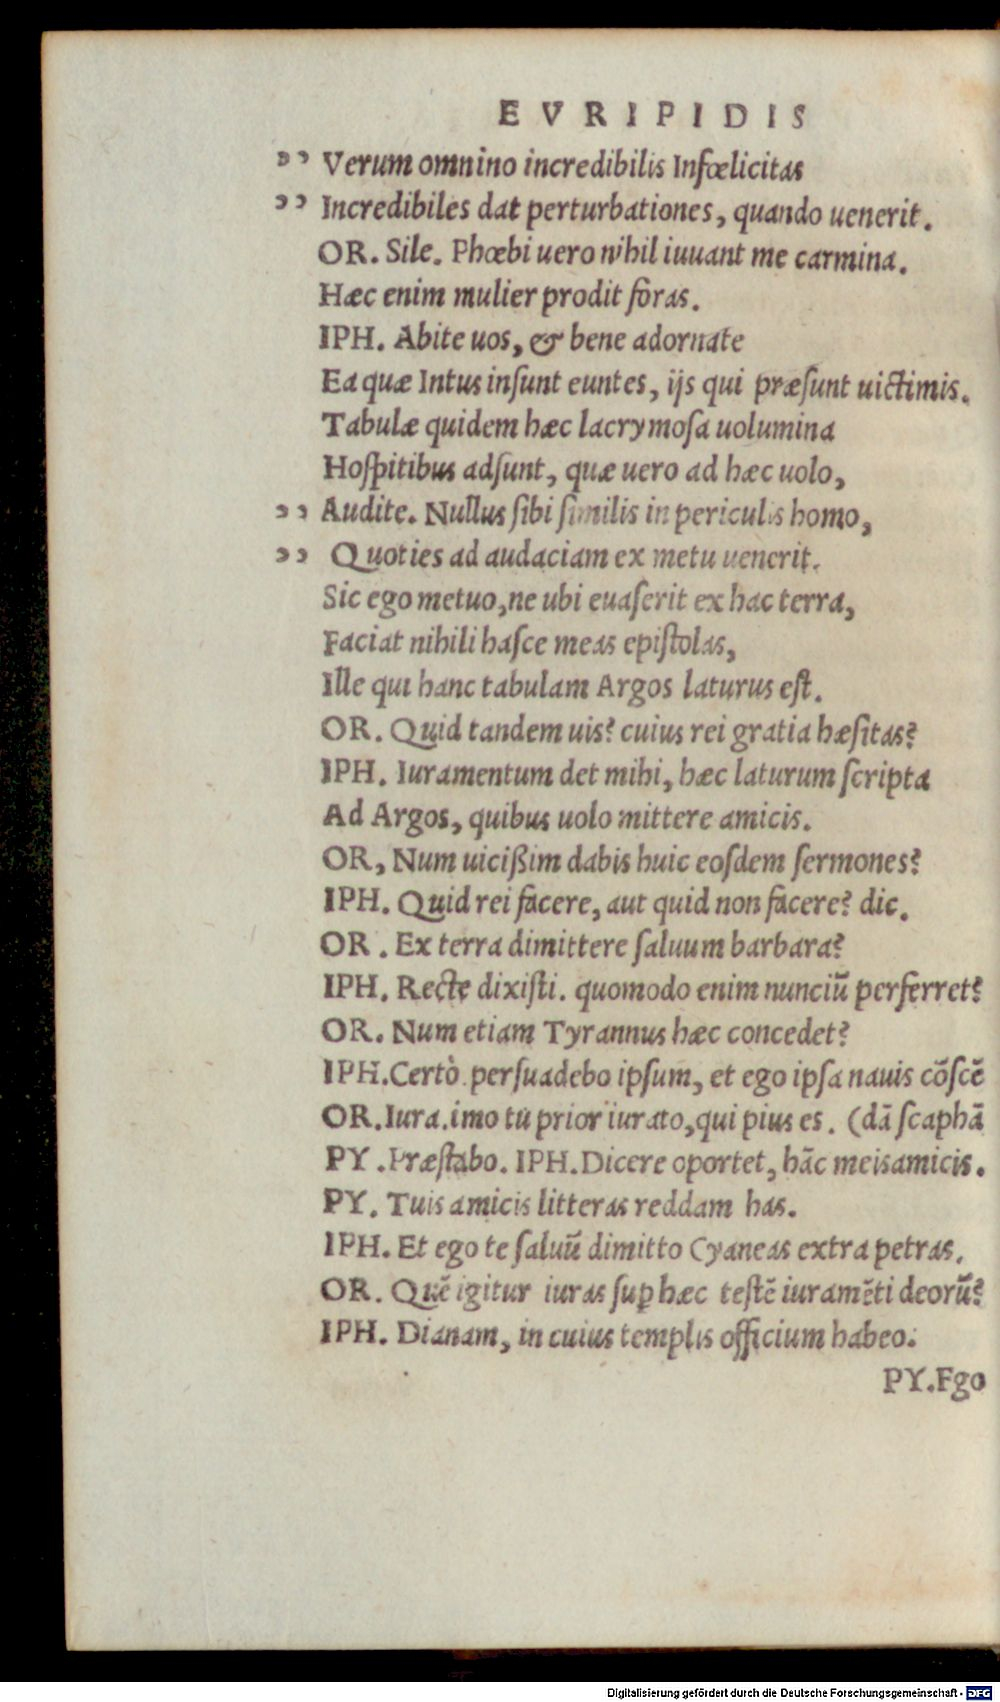 EVRIPIDIS
„ Verum omnino incredibilis Infœlicitas
„ Incredibiles dat perturbationes, quando uenerit.
OR. Sile. Phœbi uero nihil iuuant me carmina.
Hæc enim mulier prodit foras.
IPH. Abite uos, & bene adornate
Ea quæ Intus insunt euntes, ijs qui præsunt uictimis.
Tabulæ quidem hæc lacrymosa uolumina
Hospitibus adsunt, quæ uero ad hæc uolo,
„ Audite. Nullus sibi similis in periculis homo,
„ Quoties ad audaciam ex metu uenerit.
Sic ego metuo, ne ubi euaserit ex hac terra,
Faciat nihili hasce meas epistolas,
Ille qui hanc tabulam Argos laturus est.
OR. Quid tandem uis? cuius rei gratia hæsitas?
IPH. Iuramentum det mihi, hæc laturum scripta
Ad Argos, quibus uolo mittere amicis.
OR, Num uicißim dabis huic eosdem sermones?
IPH. Quid rei facere, aut quid non facere? dic.
OR . Ex terra dimittere saluum barbara?
IPH. Recte dixisti. quomodo enim nunciū perferret?
OR. Num etiam Tyrannus hæc concedet?
IPH. Certò persuadebo ipsum, et ego ipsa nauis cōscē
OR. Iura. imo tu prior iurato, qui pius es. (dā scaphā
PY . Præstabo. IPH. Dicere oportet, hāc meis amicis.
PY. Tuis amicis litteras reddam has.
IPH. Et ego te saluū dimitto Cyaneas extra petras.
OR. Quē igitur iuras suꝑ hæc testē iuramēti deorū?
IPH. Dianam, in cuius templis officium habeo.
PY. Ego
Digitalisierung gefördert durch die Deutsche Forschungsgemeinschaft - DFG